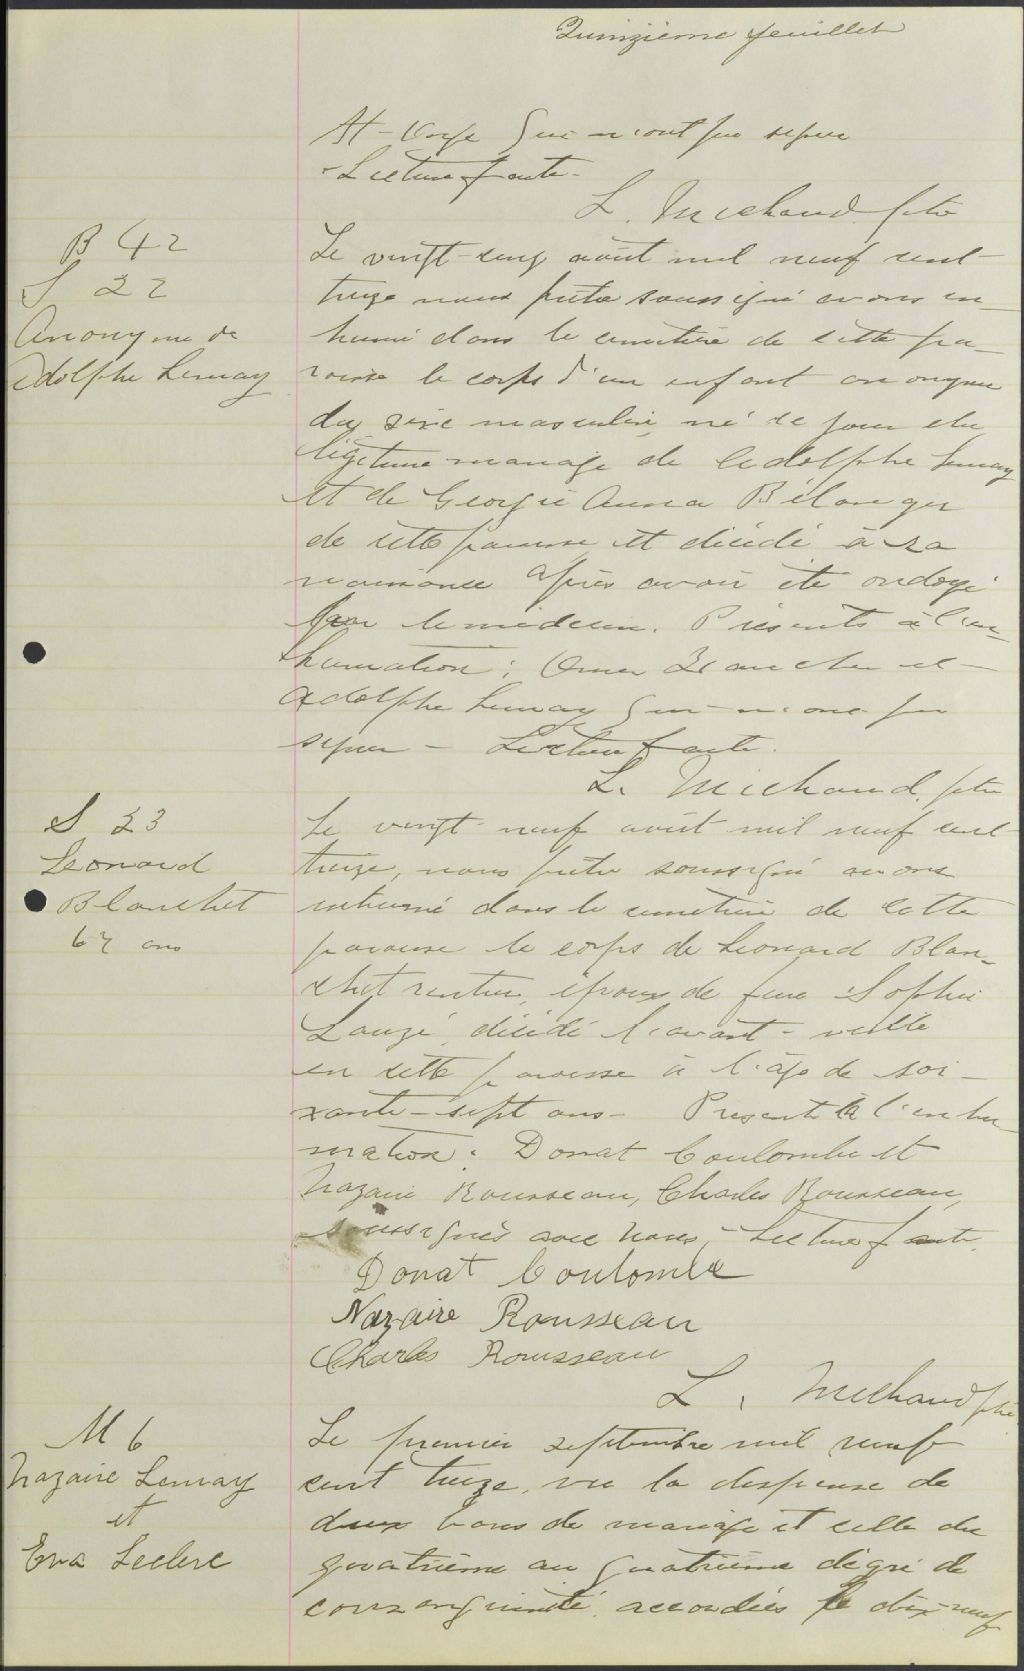 Quinzième feuillet
St-Onge qui n'ont pu signer
- Lecture faite -
L. Michaud ptre
B 42
S 22
Anonyme de
Adolphe Lemay
Le vingt-cinq août mil neuf cent
treize nous prêtre soussigné avons in-
humé dans le cimetière de cette pa-
roisse le corps d'un enfant anonyme
du sexe masculin, né ce jour du
légitime mariage de Adolphe Lemay
et de Georgie Anna Bélanger
de cette paroisse et décédé à sa
naissance après avoir été ondoyé
par le médecin. Présents à l'in-
humation: Omer Blanchet et
Adolphe Lemay qui n'ont pu
signer - Lecture faite.
L. Michaud, ptre
S 23
Leonard
Blanchet
67 ans
Le vingt-neuf août mil neuf cent
treize, nous prêtre soussigné avons
inhumé dans le cimetière de cette
paroisse le corps de Leonard Blan-
chet rentier, époux de feue Sophie
Lauzé, décédé l'avant-veille
en cette paroisse à l'âge de soi-
xante-sept ans - Présents à l'inhu-
mation: Donat Coulombe et
Nazaire Rousseau, Charles Rousseau,
soussignés avec nous, - Lecture faite.
Donat Coulombe
Nazaire Rousseau
Charles Rousseau
L. Michaud ptre
M 6
Nazaire Lemay
et
Eva Leclerc
Le premier septembre mil neuf
cent treize, vu la dispense de
deux bans de mariage et celle du
quatrième au quatrième dégré de
consanguinité accordées le dix-neuf